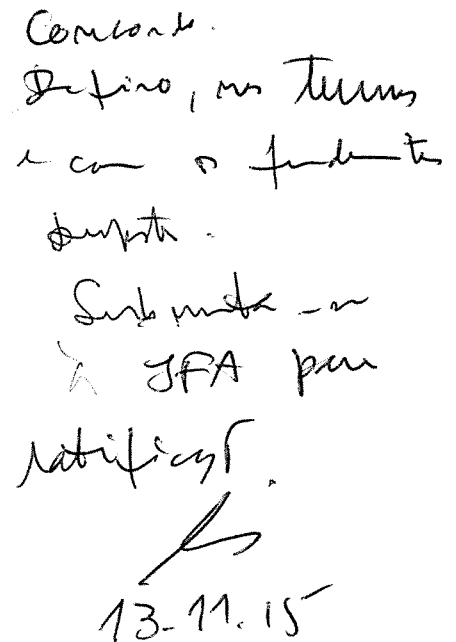 Concordo.
Defiro, nos termos
e com os fundamentos
propostos.
Submeta-se
à JFA para
ratificação.
13-11.15